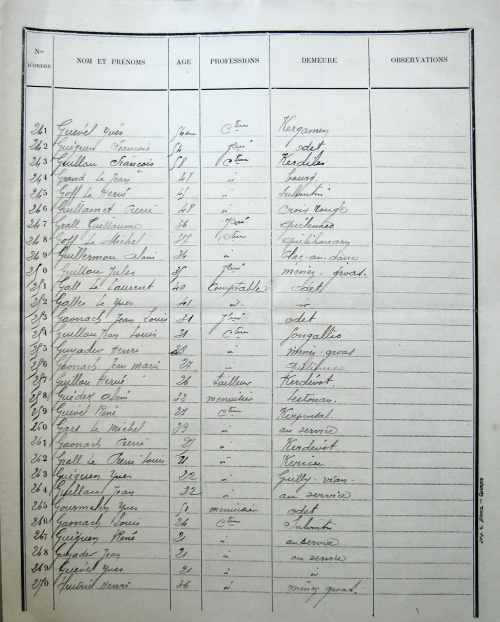 Nos D'ORDRE NOM ET PRÉNOMS AGE PROFESSIONS DEMEURE OBSERVATIONS
241 Guével Yves Cteur
242 Guéguen François 54 Jlié odet
243 Guillou François 58 Cteur Kerdiles
244 Grand Le Jean 48 " bourg
245 Goff Le Hervé 45 "
246 Guillamet Pierre 48 " Croix rouge
247 Grall Guillaume 36 Jlié
248 Goff Le Michel 37 Cteur
249 Guillermou Alain 36 "
250 Guillou Jules 35 Jlié menez-groas.
251 Gall Le Laurent 40 Comptable odet
252 Gallès Le Yves 41 " "
253 Gaonach Jean Louis 31 Jlié odet.
254 Guillou Jean Louis 31 Cteur
255 Guyader Henri 28 " menez-groas
256 Gaonach Jean marie 27 "
257 Guillou Hervé 26 tailleur Kerdévot
258 Guéder Alain 32 menuisier Lestonan
259 Guével René 24 Cteur
260 Gars Le Michel 23 " au service
261 Gaonach Pierre " Kerdévot.
262 Grall Le Pierre Louis 21 "
263 Guéguen Yves 22 " Guilly-vian
264 Guillou Jean 22 " au service
265 Gourmelen Yves 51 menuisier odet
266 Gaonach Louis 24 Cteur
267 Guéguen René 21 " au service
268 Guyader Jean 21 " au service
269 Guével Yves 21 " "
270 Henri 36 " menez groas.